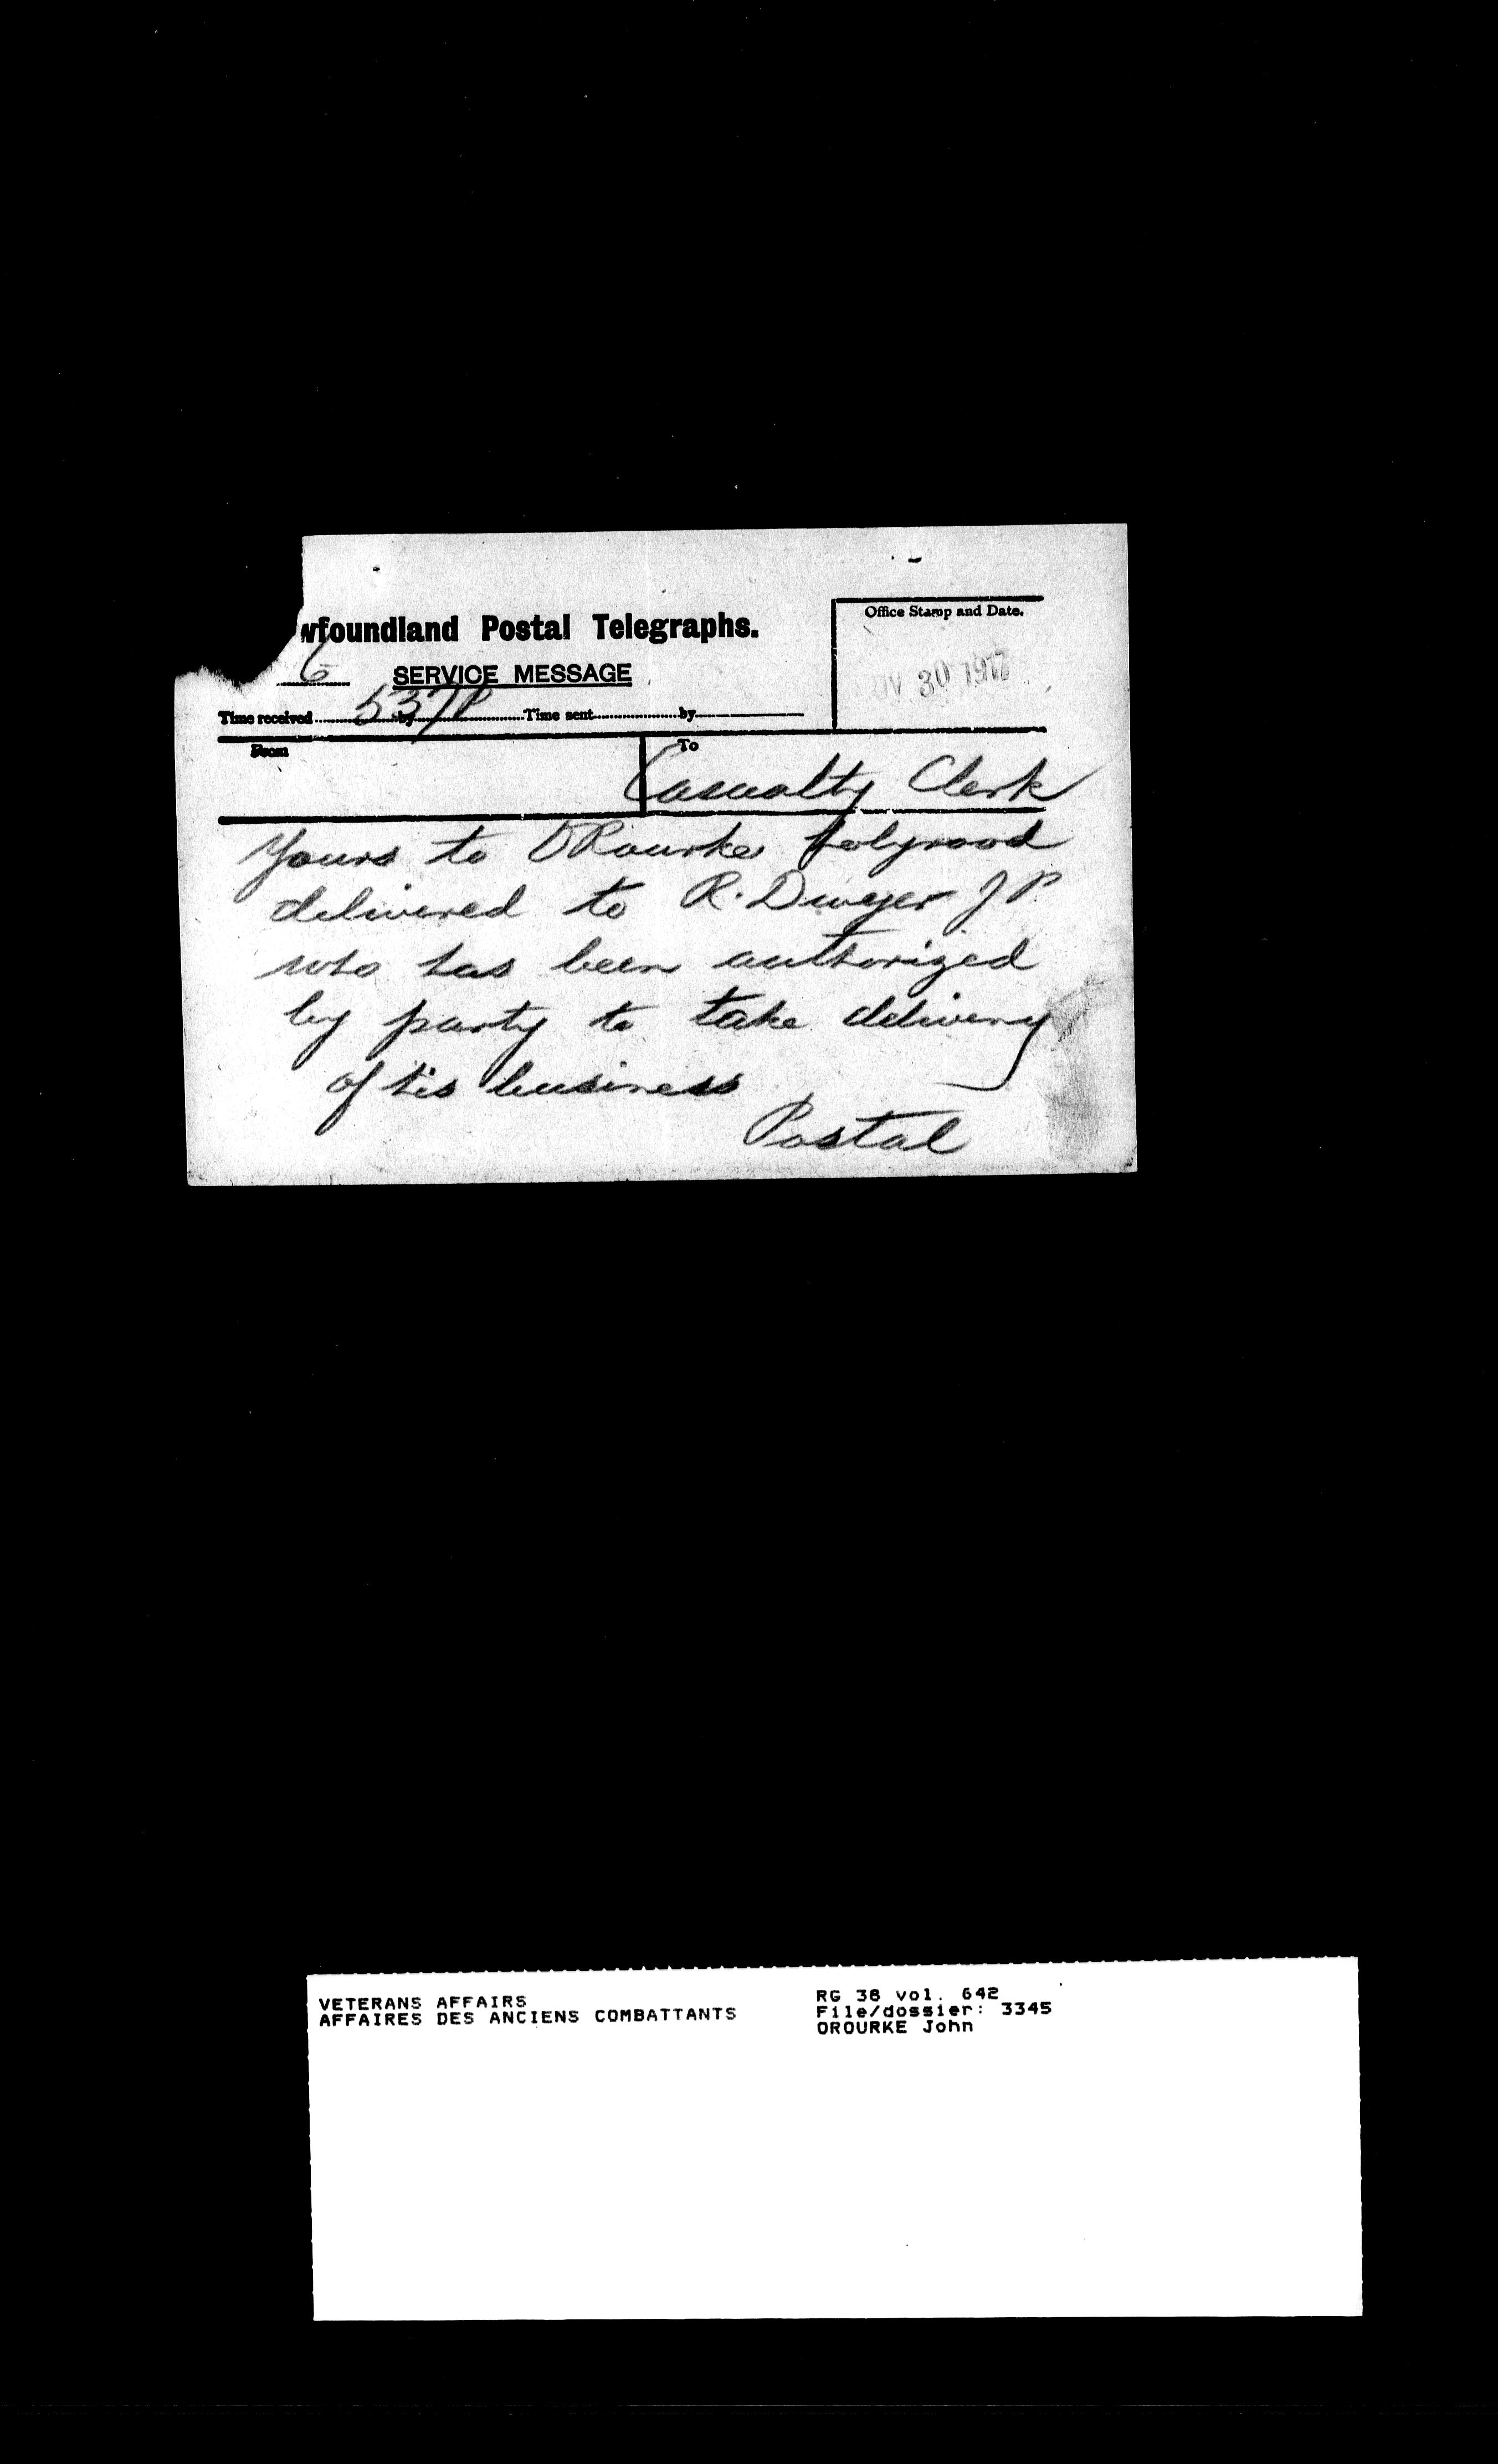 wfoundland Postal Telegraphs.
Office Stamp and Date.
6 SERVICE MESSAGE
OV 30 1917
Time received 537P by Time sent by
From
To
Casualty Clerk
Yours to O'Rourke Holyrood
delivered to R. Dwyer J P
who has been authorized
by party to take delivery
of his business
Postal
VETERANS AFFAIRS
AFFAIRES DES ANCIENS COMBATTANTS
RG 38 vol. 642
File/dossier: 3345
OROURKE John